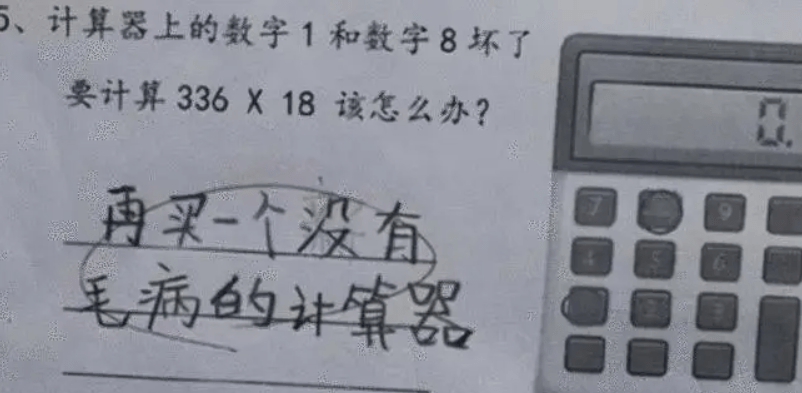 5、计算器上的数字1和数字8坏了
要计算 336 X 18 该怎么办?
再买一个没有
毛病的计算器
0.
7 9
4 5 6
2 3